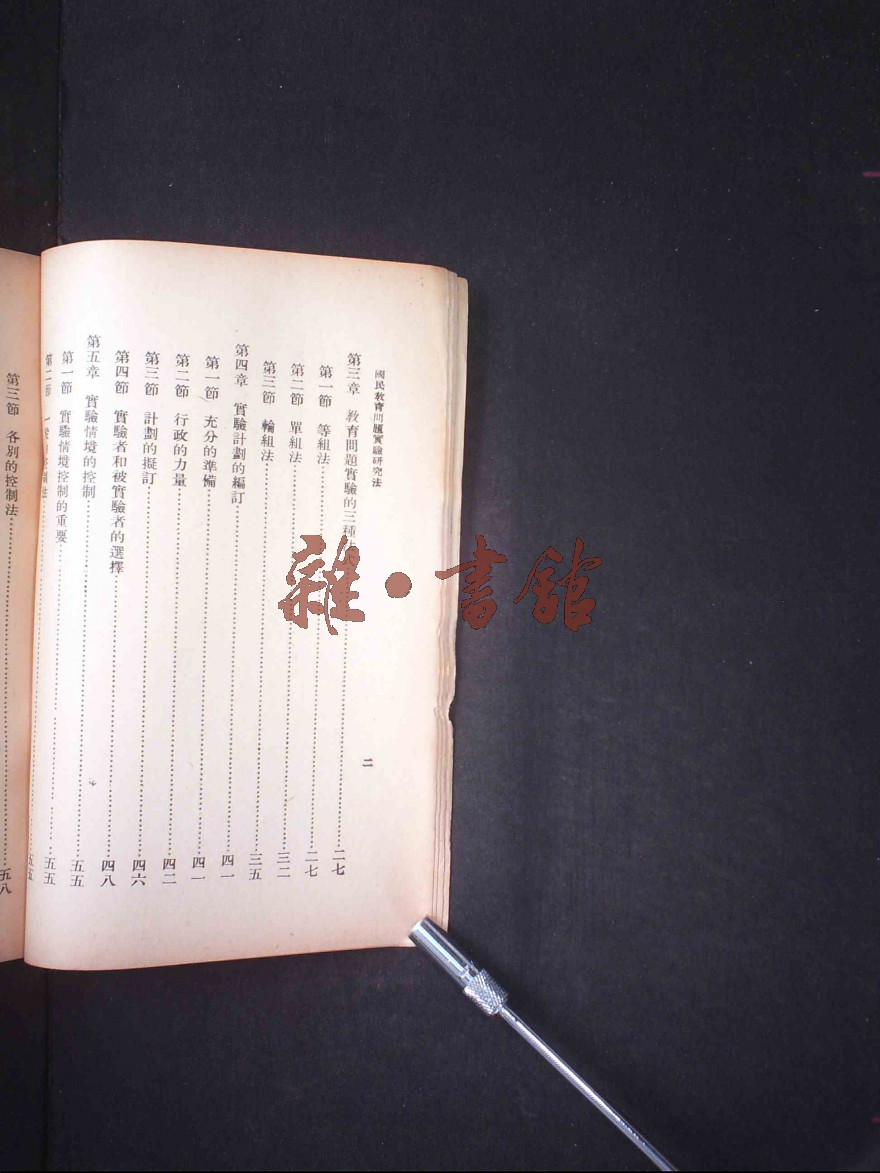 國民教育問題實驗研究法
二
第三章 教育問題實驗的三種 二七
第一節 等組法 二七
第二節 單組法 三二
第三節 輪組法 三五
第四章 實驗計劃的編訂 四一
第一節 充分的準備 四一
第二節 行政的力量 四二
第三節 計劃的擬訂 四六
第四節 實驗者和被實驗者的選擇 四八
第五章 實驗情境的控制 五五
第一節 實驗情境控制的重要 五五
第二節
第三節 各別的控制法 五八
雜·書館